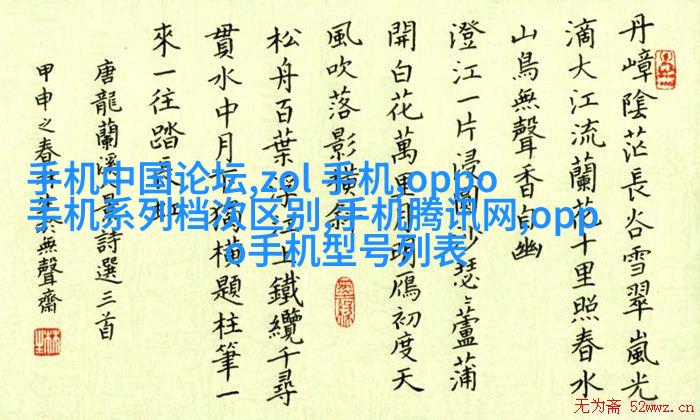 丹嶂陰茫長谷雪翠嵐光
滴大江流蘭花十里照春水
山鳥無聲香自幽
澄江一片浸
瑟瑟蘆蒲
開白花萬里
鴈初度天
風吹落影橫斜
松舟百葉
上鐵纜千尋
貫水中月
獨描題柱筆一
來一往踏
唐龍蘭溪
詩選三首
甲申之春
於無聲齋
手机中国论坛,zol 手机,oppo
手机系列档次区别,手机腾讯网,opp
o手机型号列表
无为斋 52wwz.cn